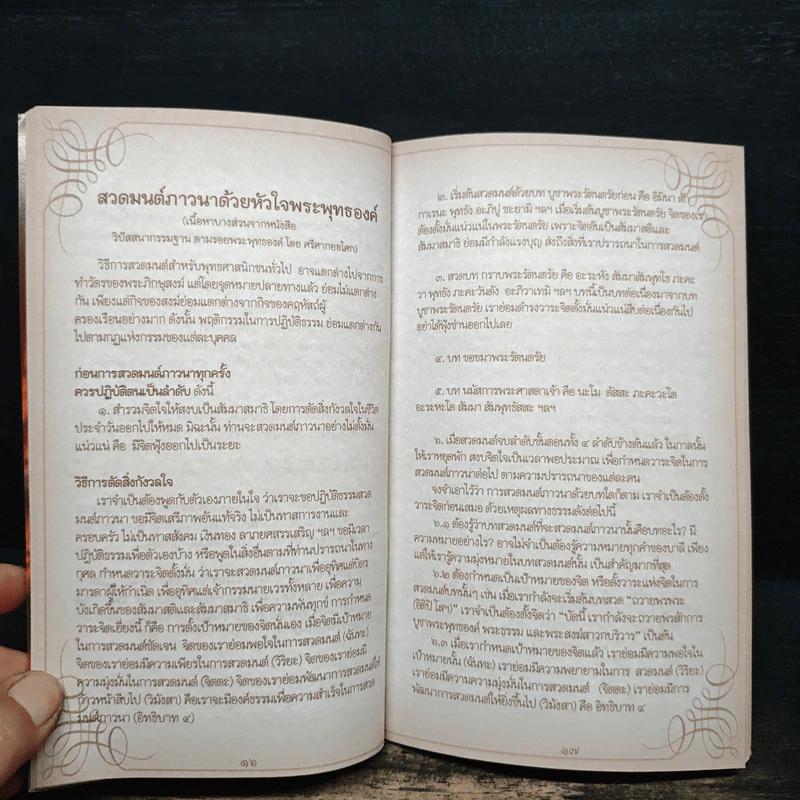 สวดมนต์ภาวนาด้วยหัวใจพระพุทธองค์
(เนื้อหาบางส่วนจากหนังสือ
วิปัสสนากรรมฐาน ตามรอยพระพุทธองค์ โดย ศรีศากยอโศก)
วิธีการสวดมนต์สำหรับพุทธศาสนิกชนทั่วไป อาจแตกต่างไปจากการ
ทำวัตรของพระภิกษุสงฆ์ แต่โดยจุดหมายปลายทางแล้ว ย่อมไม่แตกต่าง
กัน เพียงแต่กิจของสงฆ์ย่อมแตกต่างจากกิจของคฤหัสถ์ผู้
ครองเรือนอย่างมาก ดังนั้น พฤติกรรมในการปฏิบัติธรรม ย่อมแตกต่างกัน
ไปตามกฎแห่งกรรมของแต่ละบุคคล
ก่อนการสวดมนต์ภาวนาทุกครั้ง
ควรปฏิบัติตนเป็นลำดับ ดังนี้
๑. สำรวมจิตใจให้สงบเป็นสัมมาสมาธิ โดยการตัดสิ่งกังวลใจในชีวิต
ประจำวันออกไปให้หมด มิฉะนั้น ท่านจะสวดมนต์ภาวนาอย่างไม่ตั้งมั่น
แน่วแน่ คือ มีจิตฟุ้งออกไปเป็นระยะ
วิธีการตัดสิ่งกังวลใจ
เราจำเป็นต้องพูดกับตัวเองภายในใจ ว่าเราจะขอปฏิบัติธรรมสวด
มนต์ภาวนา ขอมีจิตเสรีภาพอันแท้จริง ไม่เป็นทาสการงานและ
ครอบครัว ไม่เป็นทาสสังคม เงินทอง ลาภยศสรรเสริญ ฯลฯ ขอมีเวลา
ปฏิบัติธรรมเพื่อตัวเองบ้าง หรือพูดในสิ่งอื่นตามที่ท่านปรารถนาในทาง
กุศล กำหนดวาระจิตตั้งมั่น ว่าเราจะสวดมนต์ภาวนาเพื่ออุทิศแด่บิดา
มารดาผู้ให้กำเนิด เพื่ออุทิศแด่เจ้ากรรมนายเวรทั้งหลาย เพื่อความ
บังเกิดขึ้นของสัมมาสติและสัมมาสมาธิ เพื่อความพ้นทุกข์ การกำหนด
วาระจิตเยี่ยงนี้ ก็คือ การตั้งเป้าหมายของจิตนั่นเอง เมื่อจิตมีเป้าหมาย
ในการสวดมนต์ชัดเจน จิตของเราย่อมพอใจในการสวดมนต์ (ฉันทะ)
จิตของเราย่อมมีความเพียรในการสวดมนต์ (วิริยะ) จิตของเราย่อมมี
ความมุ่งมั่นในการสวดมนต์ (จิตตะ) จิตของเราย่อมพัฒนาการสวดมนต์ให้
ก้าวหน้าสืบไป (วิมังสา) คือเราจะมีองค์ธรรมเพื่อความสำเร็จในการสวด
มนต์ภาวนา (อิทธิบาท ๔)
๑๖
๒. เริ่มต้นสวดมนต์ด้วยบท บูชาพระรัตนตรัยก่อน คือ อิมินา สัก
กาเรนะ พุทธัง อะภิปู ชะยามิ ฯลฯ เมื่อเริ่มต้นบูชาพระรัตนตรัย จิตของเรา
ต้องตั้งมั่นแน่วแน่ในพระรัตนตรัย เพราะจิตอันเป็นสัมมาสติและ
สัมมาสมาธิ ย่อมมีกำลังแรงบุญ ส่งถึงสิ่งที่เราปรารถนาในการสวดมนต์
๓. สวดบท กราบพระรัตนตรัย คือ อะระหัง สัมมาสัมพุทโธ ภะคะ
วา พุทธัง ภะคะวันตัง อะภิวาเทมิ ฯลฯ บทนี้เป็นบทต่อเนื่องมาจากบท
บูชาพระรัตนตรัย เราย่อมดำรงวาระจิตตั้งมั่นแน่วแน่สืบต่อเนื่องกันไป
อย่าได้ฟุ้งซ่านออกไปเลย
๔. บท ขอขมาพระรัตนตรัย
๕. บท นมัสการพระศาสดาเจ้า คือ นะโม ตัสสะ ภะคะวะโต
อะระหะโต สัมมา สัมพุทธัสสะ ฯลฯ
๖. เมื่อสวดมนต์จบลำดับขั้นตอนทั้ง ๕ ลำดับข้างต้นแล้ว ในกาลนั้น
ให้เราหยุดพัก สงบจิตใจเป็นเวลาพอประมาณ เพื่อกำหนดวาระจิตในการ
สวดมนต์ภาวนาต่อไป ตามความปรารถนาของแต่ละคน
จงจำเอาไว้ว่า การสวดมนต์ภาวนาด้วยบทใดก็ตาม เราจำเป็นต้องตั้ง
วาระจิตก่อนเสมอ ด้วยเหตุผลทางธรรมดังต่อไปนี้
๖.๑ ต้องรู้ว่าบทสวดมนต์ที่จะสวดมนต์ภาวนานั้นคือบทอะไร? มี
ความหมายอย่างไร? อาจไม่จำเป็นต้องรู้ความหมายทุกคำของบาลี เพียง
แต่ให้เรารู้ความมุ่งหมายในบทสวดมนต์นั้น เป็นสำคัญมากที่สุด
๖.๒ ต้องกำหนดเป็นเป้าหมายของจิต หรือตั้งวาระแห่งจิตในการ
สวดมนต์บทนั้นๆ เช่น เมื่อเรากำลังจะเริ่มต้นบทสวด "ถวายพรพระ
(อิติปิ โสฯ)" เราจำเป็นต้องตั้งจิตว่า "บัดนี้ เรากำลังจะถวายพรสักการ
บูชาพระพุทธองค์ พระธรรม และพระสงฆ์สาวกบริวาร" เป็นต้น
๖.๓ เมื่อเรากำหนดเป้าหมายของจิตแล้ว เราย่อมมีความพอใจใน
เป้าหมายนั้น (ฉันทะ) เราย่อมมีความพยายามในการ สวดมนต์ (วิริยะ)
เราย่อมมีความความมุ่งมั่นในการสวดมนต์ (จิตตะ) เราย่อมมีการ
พัฒนาการสวดมนต์ให้ยิ่งขึ้นไป (วิมังสา) คือ อิทธิบาท ๔
๑๗